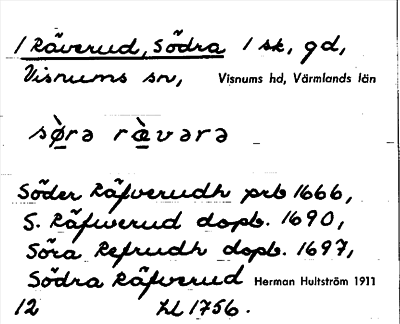 1 Räverud, Södra 1 sk, gd,
Visnums sn, Visnums hd, Värmlands län
sø̀rə ræ̀vərə
Söder Räfverudh prb 1666,
S. Räfwerud dopb. 1690,
Söra Refrudh dopb. 1697,
Södra Räfverud Herman Hultström 1911
12 hl 1756.